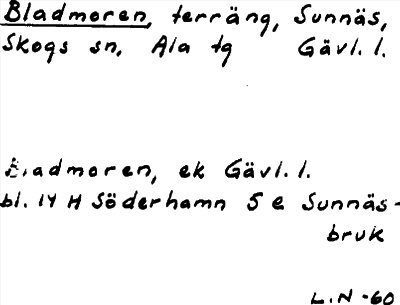 Bladmoren, terräng, Sunnäs,
Skogs sn, Ala tg Gävl. l.
Bladmoren, ek Gävl. l.
bl. 14 H Söderhamn 5 e Sunnäs-
bruk
L.N -60